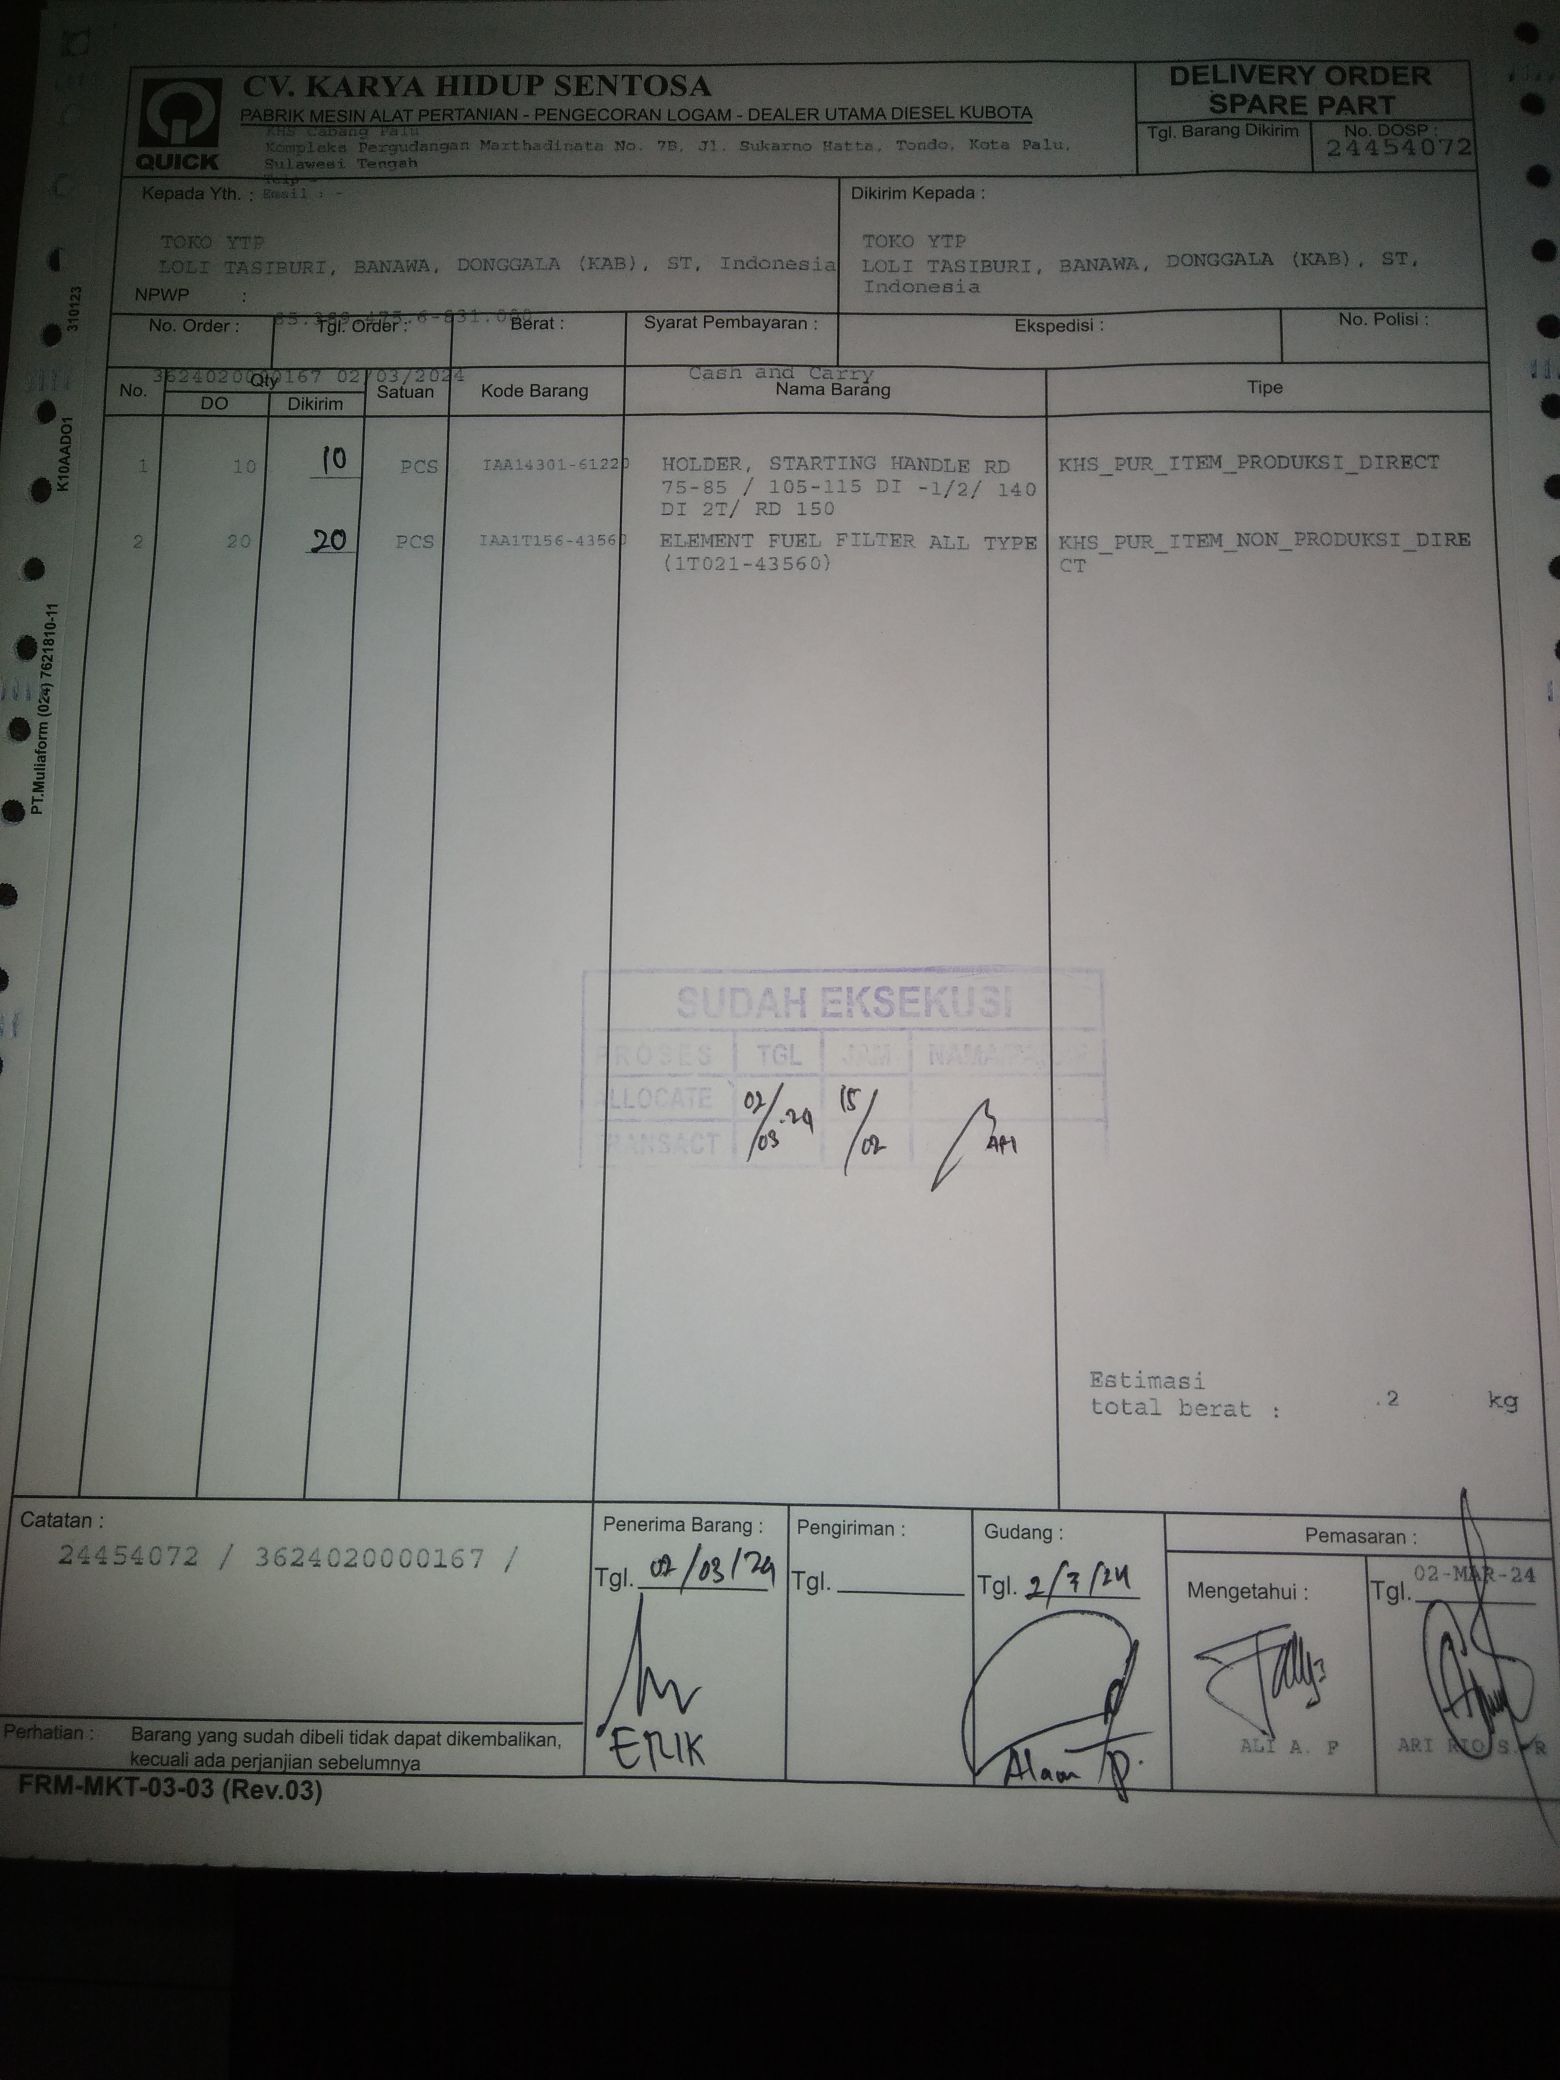 CV. KARYA HIDUP SENTOSA
PABRIK MESIN ALAT PERTANIAN - PENGECORAN LOGAM - DEALER UTAMA DIESEL KUBOTA
QUICK
KHS Cabang Palu
Kompleks Pergudangan Marthadinata No. 7B, Jl. Sukarno Hatta, Tondo, Kota Palu,
Sulawesi Tengah
Telp -
Email : -
DELIVERY ORDER
SPARE PART
Tgl. Barang Dikirim
No. DOSP :
24454072
Kepada Yth. :
TOKO YTP
LOLI TASIBURI, BANAWA, DONGGALA (KAB), ST, Indonesia
NPWP :
Dikirim Kepada :
TOKO YTP
LOLI TASIBURI, BANAWA, DONGGALA (KAB), ST,
Indonesia
No. Order : Tgl. Order : Berat : Syarat Pembayaran : Ekspedisi : No. Polisi :
3624020000167 02/03/2024 Cash and Carry
No. Qty Satuan Kode Barang Nama Barang Tipe
DO Dikirim
1 10 10 PCS IAA14301-61220 HOLDER, STARTING HANDLE RD KHS_PUR_ITEM_PRODUKSI_DIRECT
75-85 / 105-115 DI -1/2/ 140
DI 2T/ RD 150
2 20 20 PCS IAA1T156-43560 ELEMENT FUEL FILTER ALL TYPE KHS_PUR_ITEM_NON_PRODUKSI_DIRE
(1T021-43560) CT
SUDAH EKSEKUSI
PROSES TGL JAM
ALLOCATE 02/03.24 15/02 ARI
TRANSACT
Estimasi
total berat : .2 kg
Catatan :
24454072 / 3624020000167 /
Penerima Barang :
Tgl. 02/03/24
ERIK
Pengiriman :
Tgl.
Gudang :
Tgl. 2/3/24
Pemasaran :
Mengetahui :
ALI A. F
Tgl. 02-MAR-24
ARI RIO S. R
Perhatian : Barang yang sudah dibeli tidak dapat dikembalikan,
kecuali ada perjanjian sebelumnya
FRM-MKT-03-03 (Rev.03)
310123
K10AADO1
PT.Muliaform (024) 7621810-11